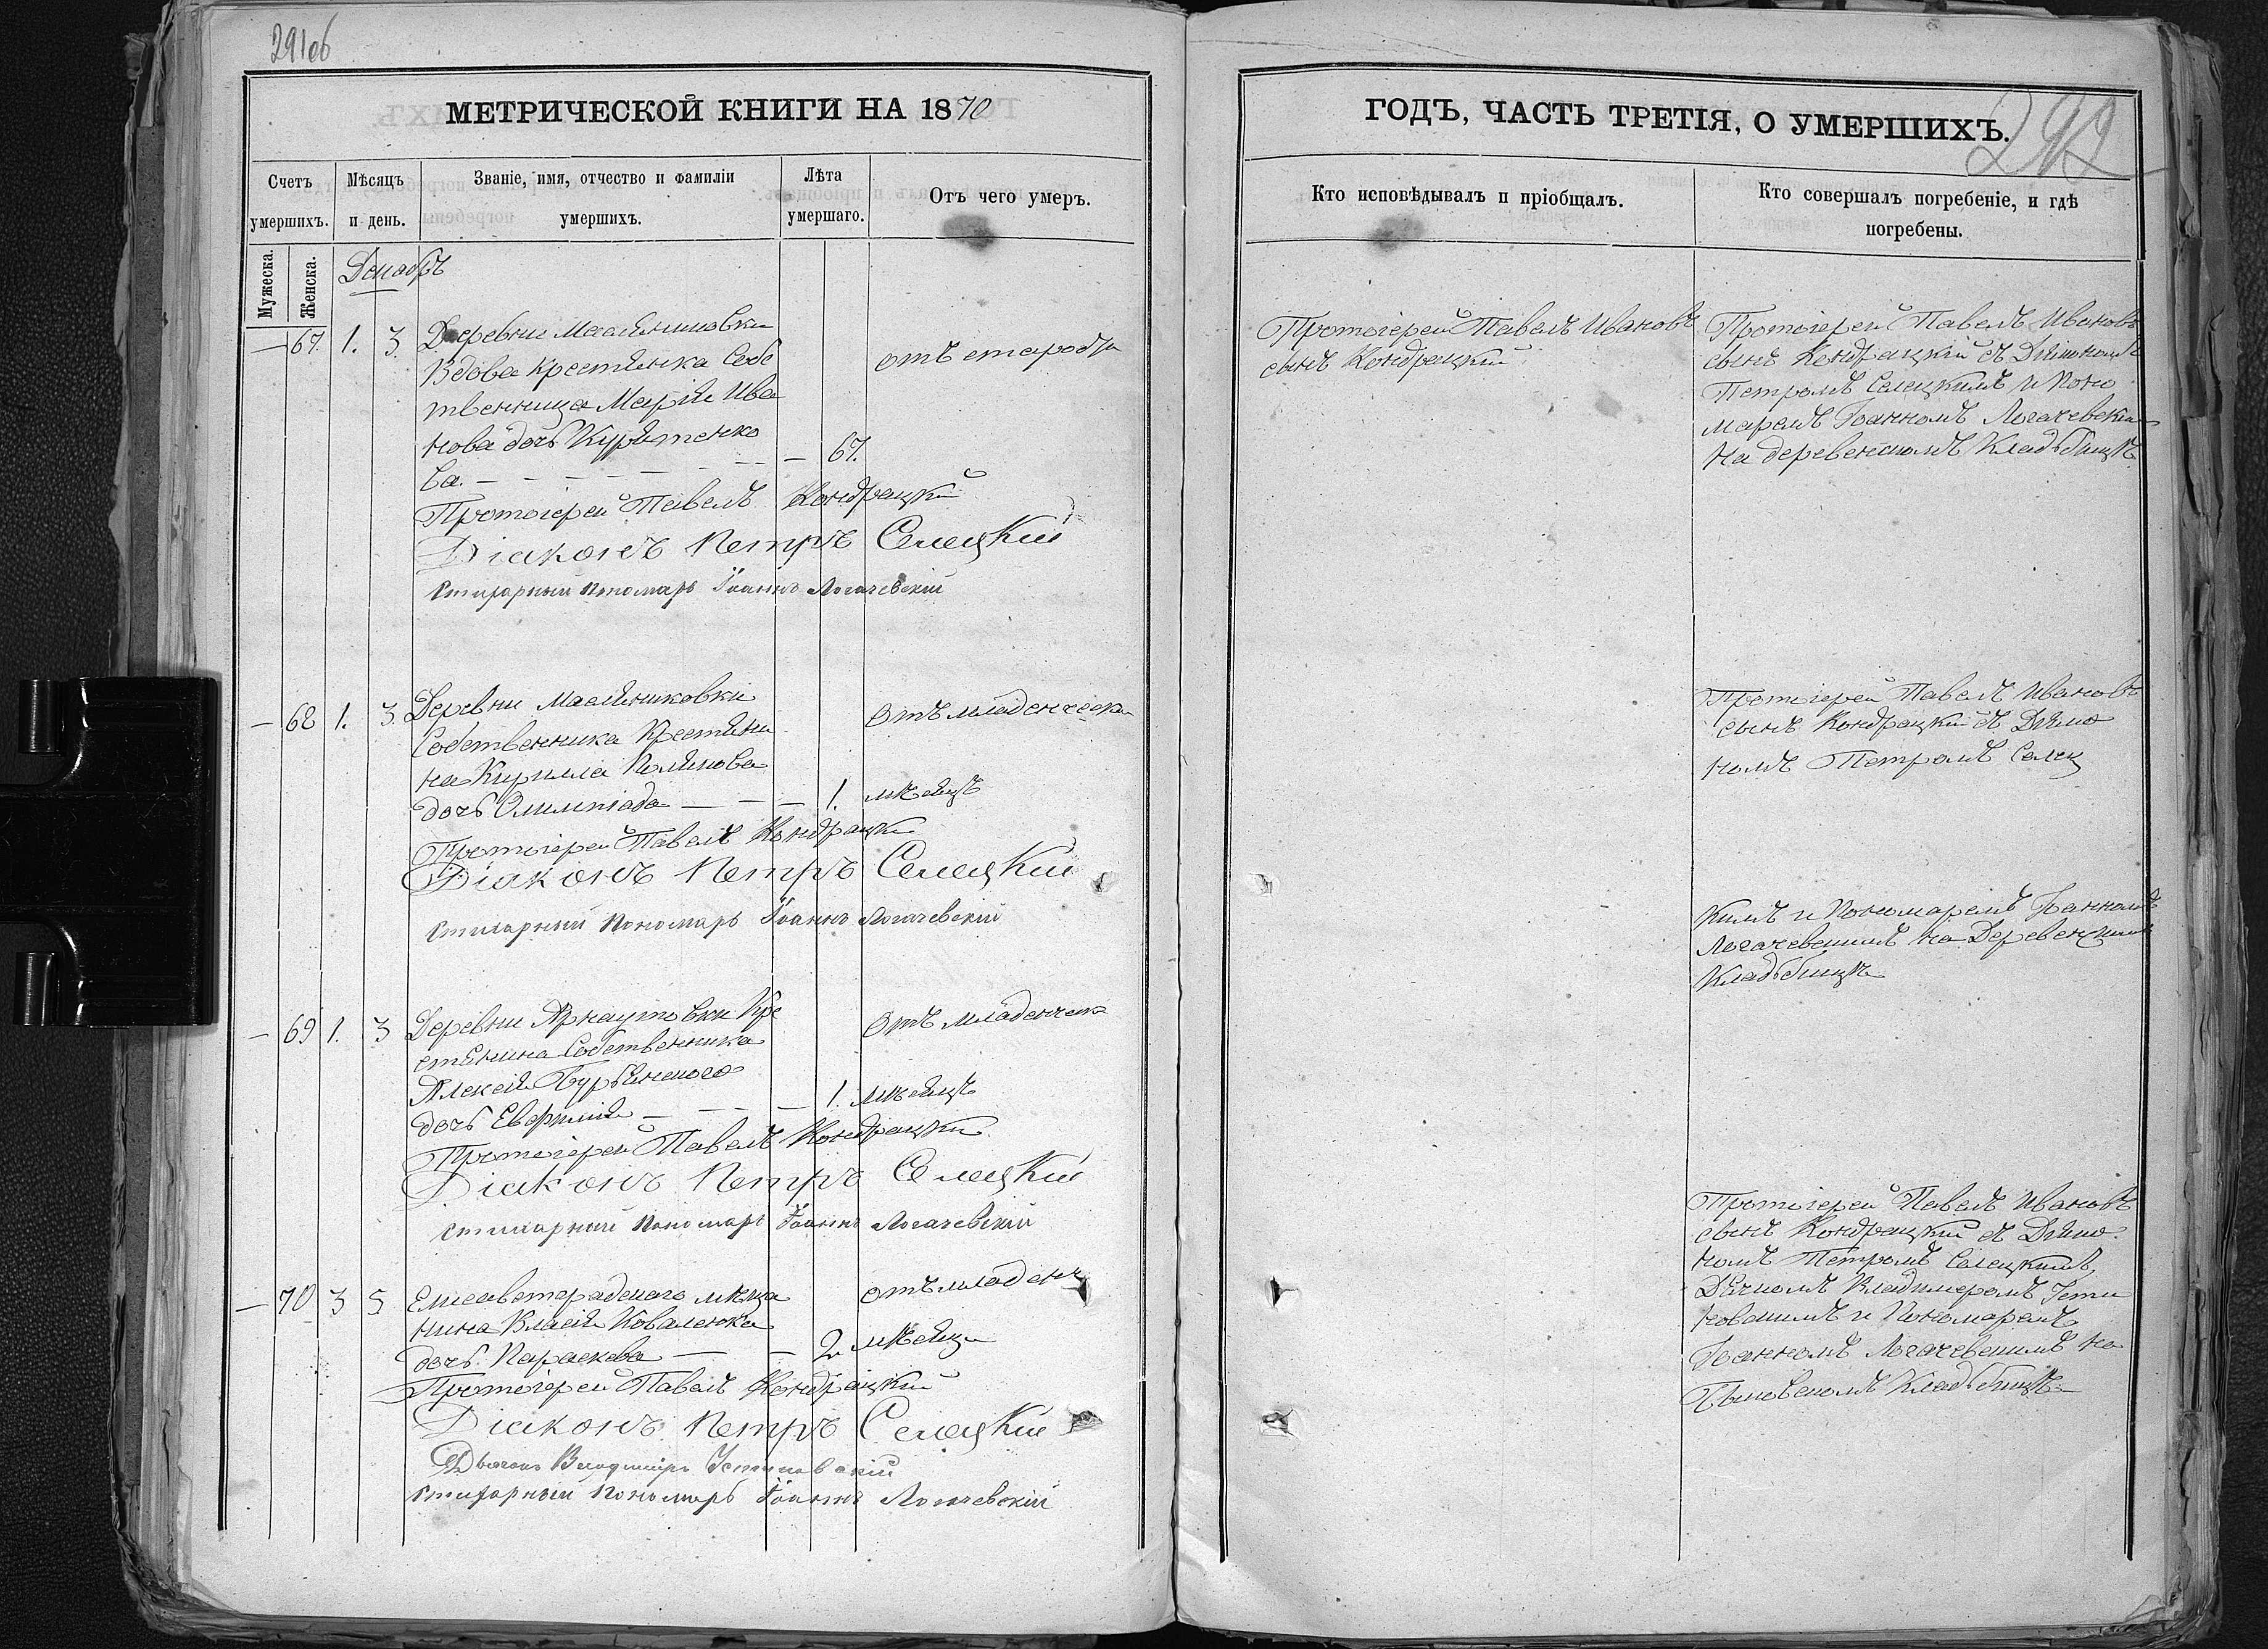 291об
МЕТРИЧЕСКОЙ КНИГИ НА 1870
Счетъ умершихъ.
Мѣсяцъ и день.
Званіе, имя, отчество и фамиліи умершихъ.
Лѣта умершаго.
Отъ чего умеръ.
Мужеска.
Женска.
Декабрь
— 67. 1. 3. Деревни Маслѣниковки
Вдова крестьянка Собс
твенница Марія Ива
нова дочь
ва. — — — — 67.
отъ старости
Протоіерей Павелъ Кондрацкій
Діаконъ Петръ Селецкій
Стихарный Пономарь Іоаннъ Логачевскій
— 68 1. 3. Деревни Маслѣниковки
Собственника Крестьяни
на Кирилла Полякова
дочь Олимпіада — — — 1. мѣсяцъ
Отъ младенческ
Протоіерей Павелъ Кондрацкій
Діаконъ Петръ Селецкій
Стихарный Пономарь Іоаннъ Логачевскій
— 69 1. 3 Деревни Арнаутовки Кре
стьянина Собственника
Алексія
дочь Евфимія — — — 1. мѣсяцъ
Отъ младенческ
Протоіерей Павелъ Кондрацкій
Діаконъ Петръ Селецкій
Стихарный Пономарь Іоаннъ Логачевскій
— 70 3 5 Елисаветградскаго мѣща
нина Власія Коваленка
дочь Параскева — — 2 мѣсяца
отъ младенч
Протоіерей Павелъ Кондрацкій
Діаконъ Петръ Селецкій
Дьячокъ Владиміръ Устиновскій
Стихарный Пономарь Іоаннъ Логачевскій
292
ГОДЪ, ЧАСТЬ ТРЕТІЯ, О УМЕРШИХЪ.
Кто исповѣдывалъ и пріобщалъ.
Кто совершалъ погребеніе, и гдѣ
погребены.
Протоіерей Павелъ Ивановъ
сынъ Кондрацкій
Протоіерей Павелъ Ивановъ
сынъ Кондрацкій съ Діакономъ
Петромъ Селецкимъ и Поно
маремъ Іоанномъ Логачевским
На деревенскомъ Кладбищѣ
Протоіерей Павелъ Ивановъ
сынъ Кондрацкій съ Діако
номъ Петромъ Селец
кимъ и Пономаремъ Іоанномъ
Логачевскимъ на Деревенскомъ
Кладбищѣ
Протоіерей Павелъ Ивановъ
сынъ Кондрацкій съ Діако
номъ Петромъ Селецкимъ,
Дьячкомъ Владимеромъ Усти
новскимъ и Пономаремъ
Іоанномъ Логачевскимъ на
Кладбищѣ